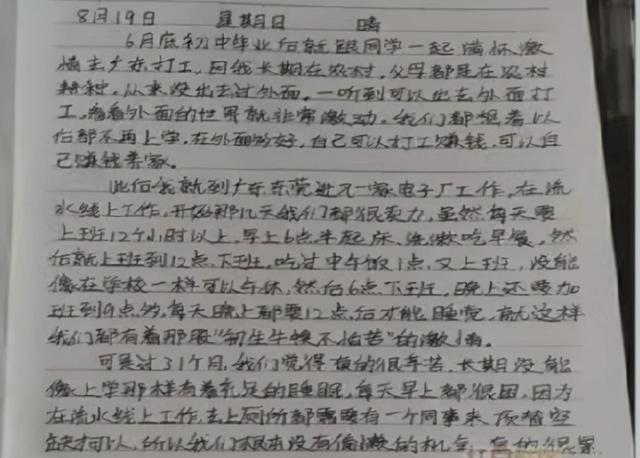 8月19日 星期日 晴
6月底初中毕业后就跟同学一起满怀激
情去广东打工,因我长期在农村,父母都是在农村
耕种,从来没出去过外面,一听到可以出去外面打
工,看看外面的世界就非常激动。我们都想着以
后都不再上学,在外面多好,自己可以打工赚钱,可以自
己赚钱养家。
此后我就到广东东莞进了一家电子厂工作,在流
水线上工作,开始那几天我们都很卖力,虽然每天要
上班12个小时以上,早上6点半起床、洗漱吃早餐,然
后就上班到12点下班,吃过中午饭1点又上班,没能
像在学校一样可以午休,然后6点下班,晚上还要加
班到9点多,每天晚上都要12点后才能睡觉,就这样
我们都有着那股"初生牛犊不怕苦"的激情。
可是过了1个月,我们觉得真的很辛苦,长期没能
像上学那样有着充足的睡眠,每天早上都很困,因为
在流水线上工作,去上厕所都需要有一个同事来顶替空
缺才可以,所以我们根本没有偷懒的机会,真的很累